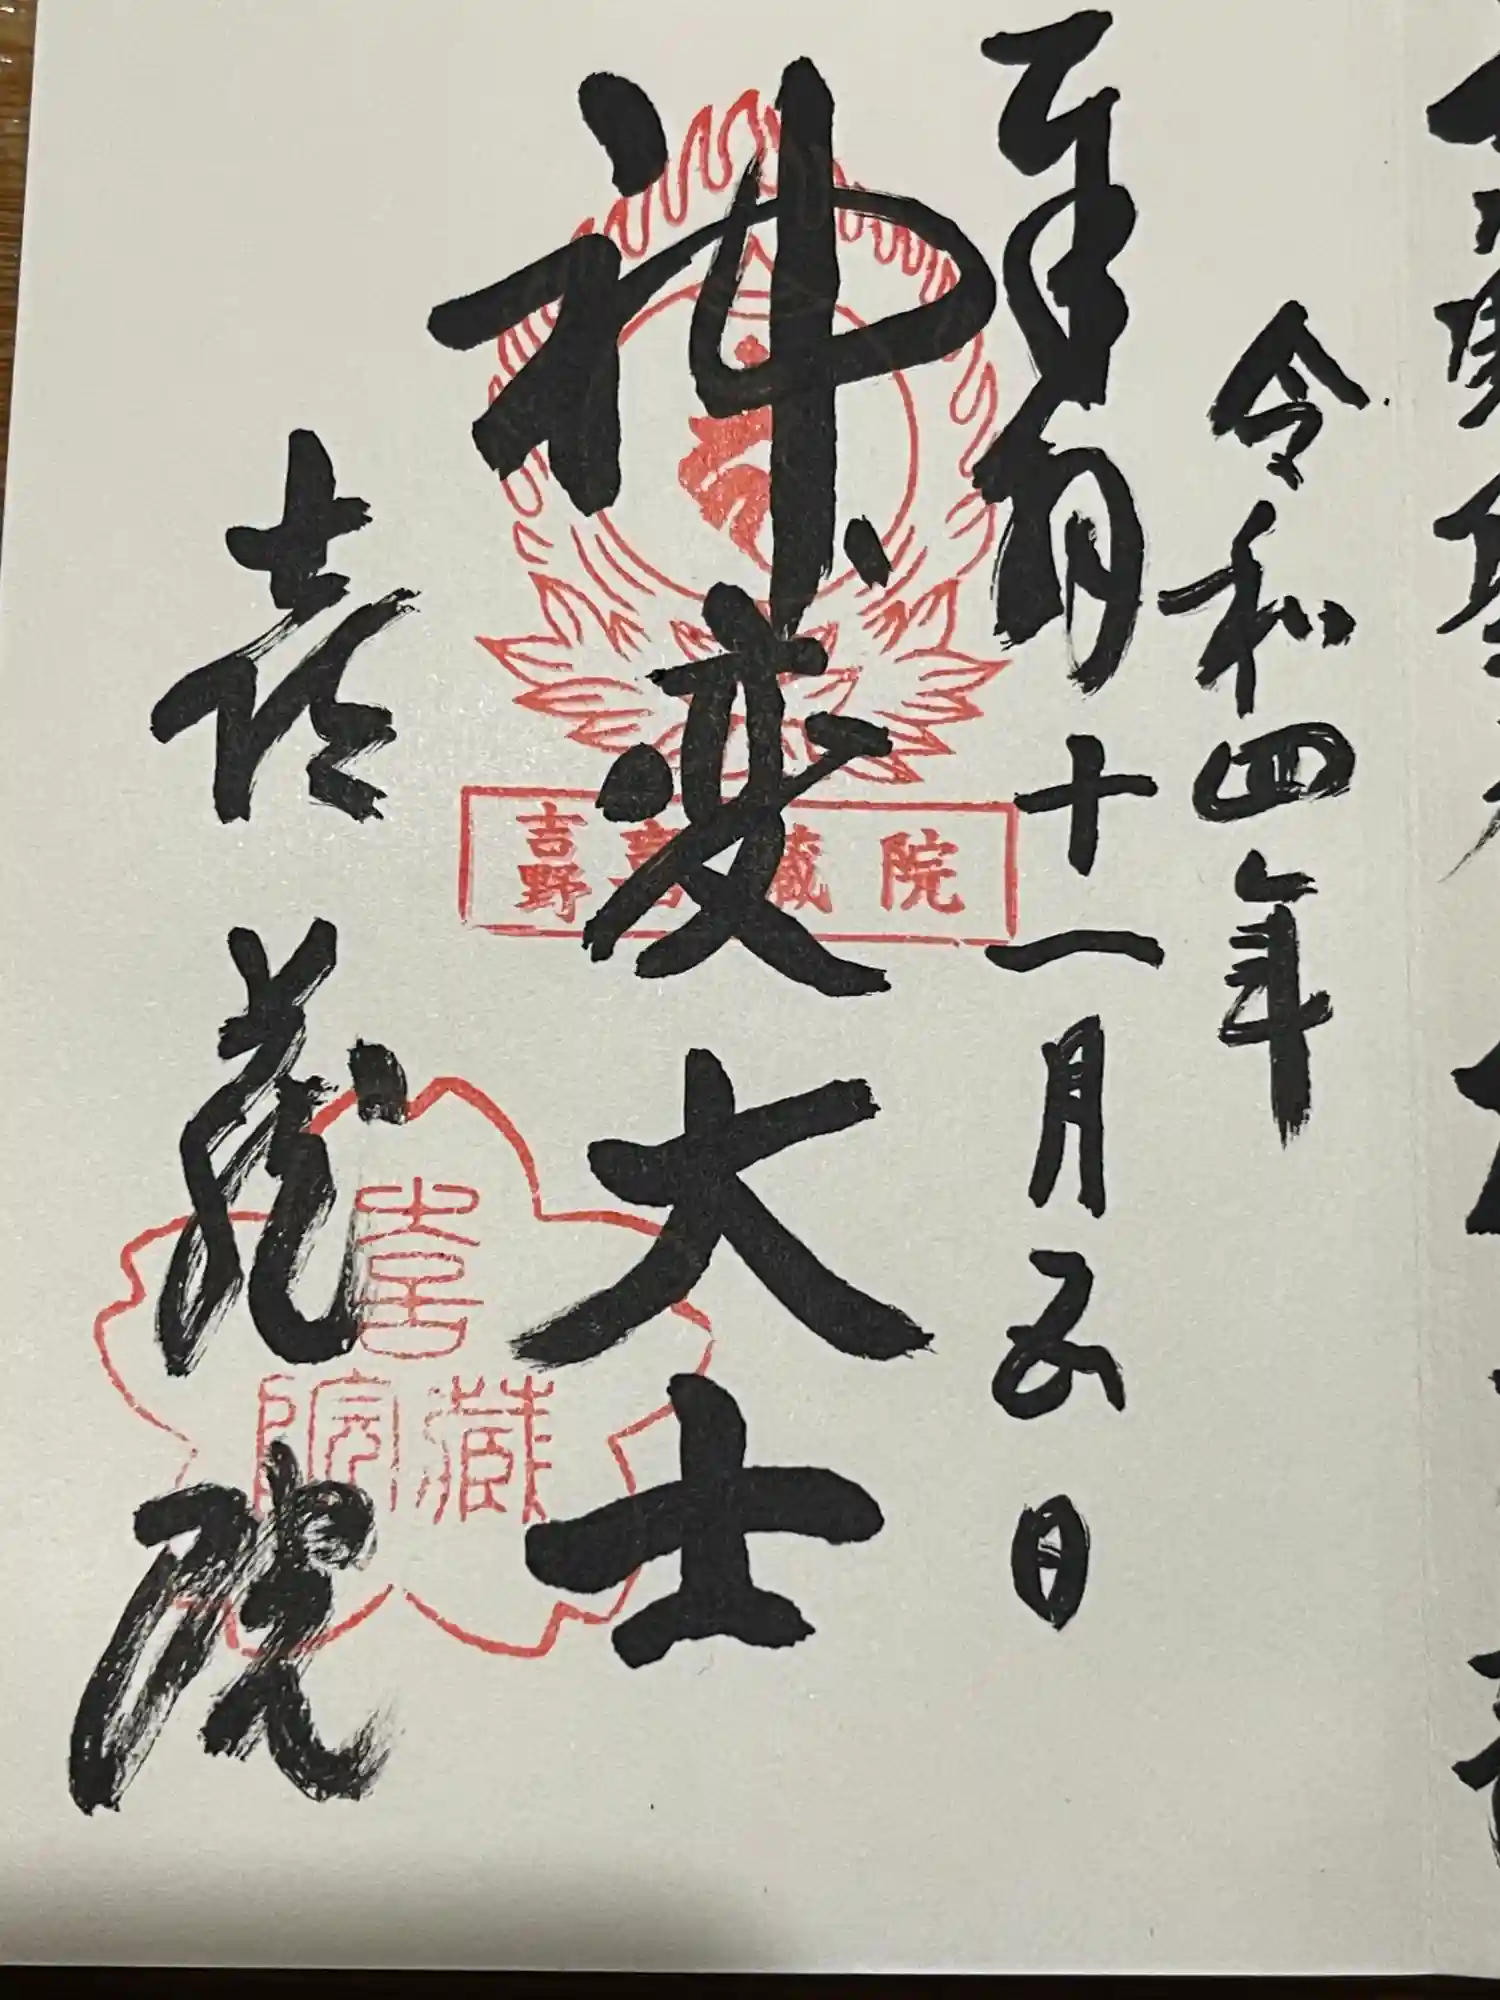 令和四年
奉拝 十一月五日
神変大士
吉野喜蔵院
喜蔵院
喜蔵院